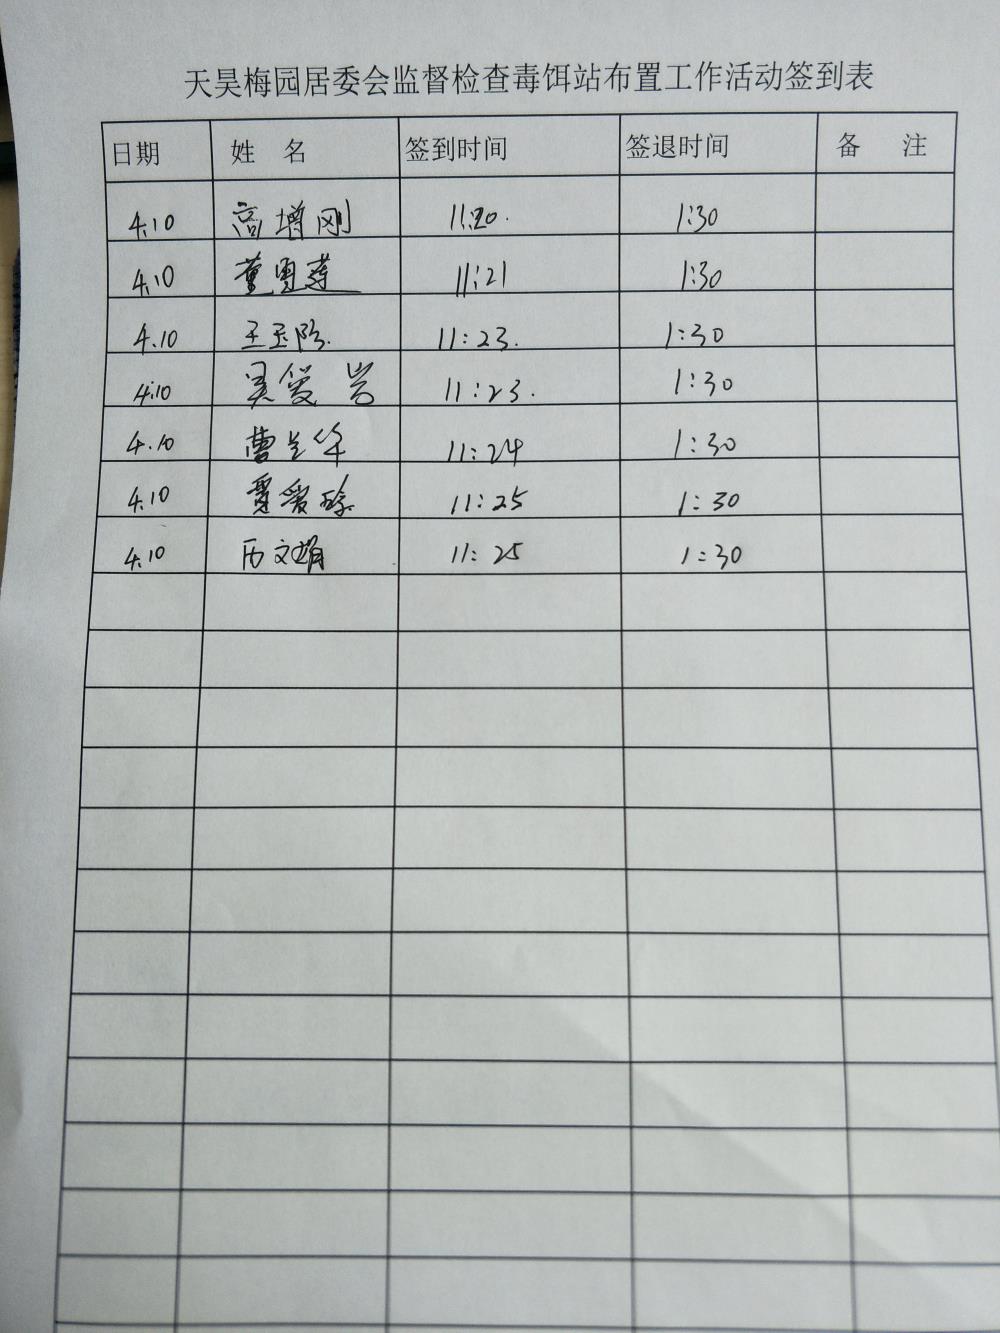 天昊梅园居委会监督检查毒饵站布置工作活动签到表
日期 姓 名 签到时间 签退时间 备 注
4.10 高增刚 11:20. 1:30
4.10 董 11:21 1:30
4.10 王玉 11:23. 1:30
4.10 吴 11:23. 1:30
4.10 曹兰华 11:24 1:30
4.10 11:25 1:30
4.10 历文娟 11:25 1:30